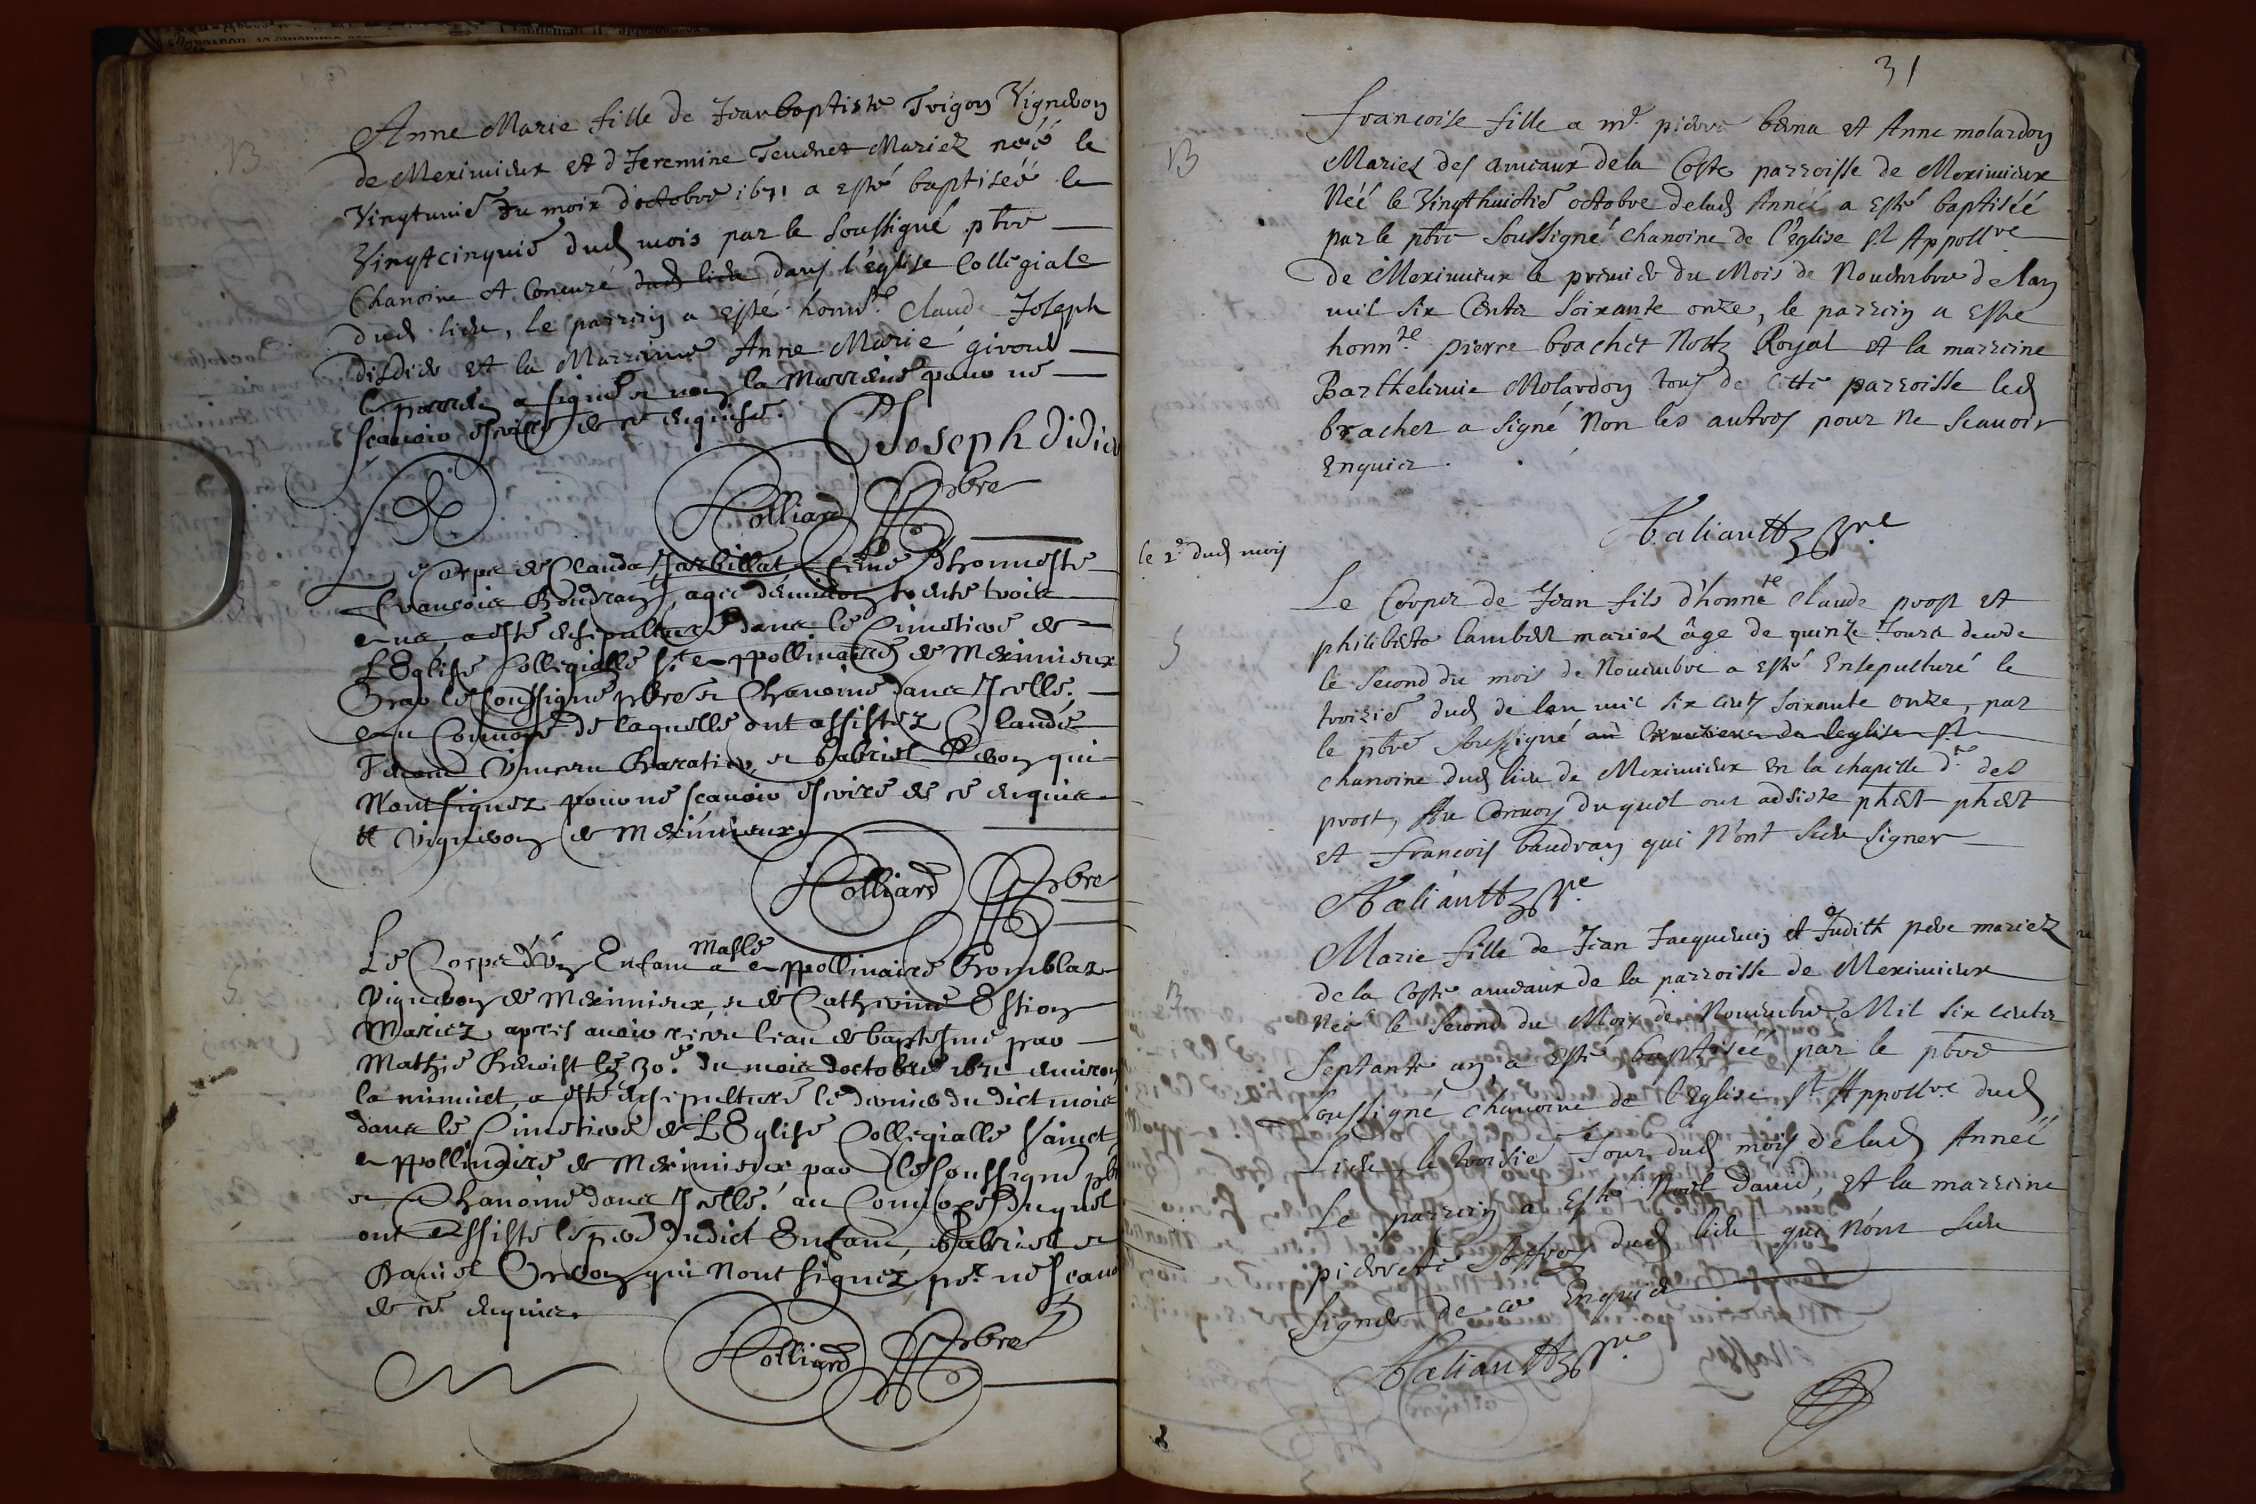 B
Anne Marie fille de Jean baptiste Trigon Vigneron
de Meximieux et d Jeremine Teuenet Mariez néé le
Vingtunie du mois d'octobre 1671 a esté baptiséé le
Vingtcinquie dud mois par le Soussigné pbre
Chanoine et Concuré dud lieu dans l'église Collegiale
dud lieu, le parrin a esté honn.ble Claude Joseph
disdier et la Marraine Anne Marie giroud
le parrin a signé et non la Marreine pour ne
scauoir escrire de ce enquise.
Joseph didier
Colliard pbre
Le Corps de Clauda feme d'honneste
Francois Boudran, agee d'enuiron trente trois
ans a esté ensepulturé dans le Cimetiere de
L'Eglise Collegialle St appollinaire de Meximieux
Par le soussigné pbre et Chanoine dans Icelle.
au Conuoye de laquelle ont assistez Claude
Vincent Baratier et Gabriel qui
N'ont signez pour ne scauoir escrire de ce enquis
Vigneron de Meximieux.
Colliard pbre
Le Corps d'vn Enfant masle a appollinaire
Vigneron de Meximieux, et de Catherine Estion
Mariez, apres auoir receu l'eau de baptesme par
Mathie Benoist le 30.e du mois d'octobre 1671 enuiron
la minuict, a esté ensepulturé le dernier du dict mois
dans le Cimetiere de L'Eglise Collegialle Sainct
appollinaire de Meximieux par le soussigné pbre
et Chanoine dans Icelle. au Conuoye duquel
ont assisté le pere dudict Enfant, Gabriel et
Daniel qui n'ont signez pr. ne scauoir
de ce enquis.
Colliard pbre
31
B
francoise fille a mr. pierre berna et Anne molardon
Mariez des ameaux de la Coste parroisse de Meximieux
Néé le Vingthuictie octobre delad Année a esté baptiséé
par le pbre Soussigné chanoine de l'église St Appollre
de Meximieux le premier du Mois de Nouembre de lan
mil six Cents Soixante onze, le parrin a este
honn.ble pierre brachet Nottr Royal et la marreine
Barthelemie Molardon tous de Cette parroisse led
brachet a signé Non les autres pour Ne Scauoir
Enquis.
le 2e dud mois
S
Le Corps de Jean fils d'honnete Claude prost et
philiberte lambert mariez âge de quinze Jours decede
le Second du mois de Nouembre a esté Ensepulturé le
troizie dud de lan mil six cents soixante onze, par
le pbre soussigné au Cimetiere de leglise St
chanoine dud lieu de Meximieux en la chapelle d. des
prost, Au Conuoy duquel ont adsisté phbt phbt
et francois baudran qui N'ont sceu signer
B
Marie fille de Jean Jacquemin et Judith pere mariez
de la Coste ameaux de la parroisse de Meximieux
Néé le Second du Mois de Nouembre Mil six cents
Septante un, a esté baptiséé par le pbre
soussigné chanoine de l'Eglise St Appollre dud
Lieu, le troisie Jour dud mois delad Année
Le parrin a Esté Noel dauid, et la marreine
pierrette dud lieu qui N'ont sceu
signer de ce Enquis